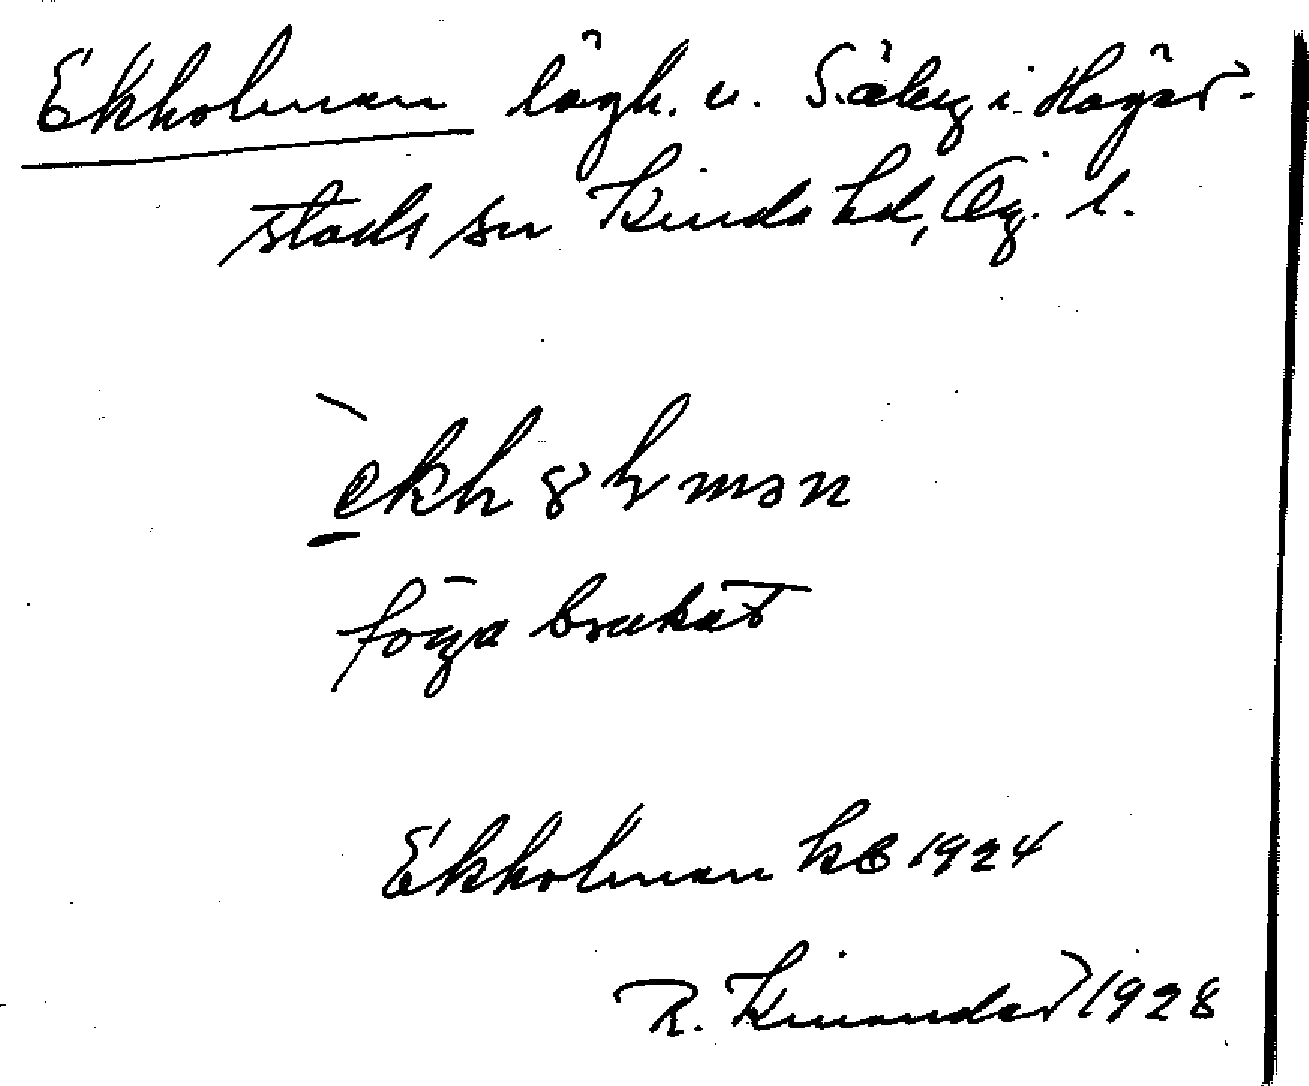 Ekholman lägh. u. Säby i Hägerstads sn Kinda hd, Ög. l.
ekhɷlmən
föga brukat
Ekholman kb 1924
R. Kinander 1928